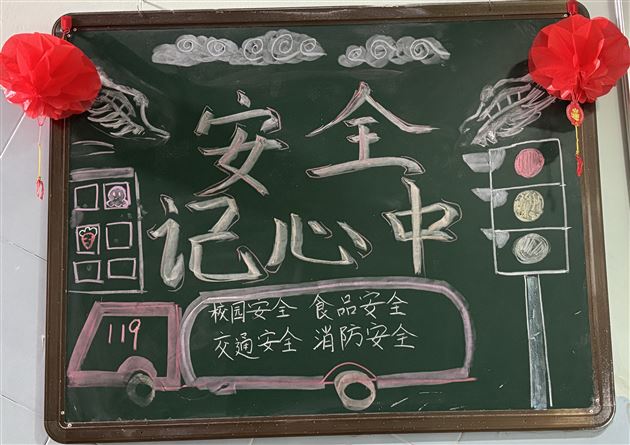 安全
记心中
119
校园安全 食品安全
交通安全 消防安全